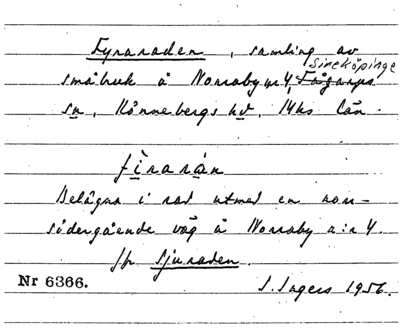 Fyraraden, samling av
småbruk å Norraby nr 4, Sireköpinge
sn, Rönnebergs hd, Mhs län.
fìrarán
Belägna i rad utmed en norr-
södergående väg å Norraby n:r 4.
jfr Sjuraden.
Nr 6366. I. Ingers 1956.